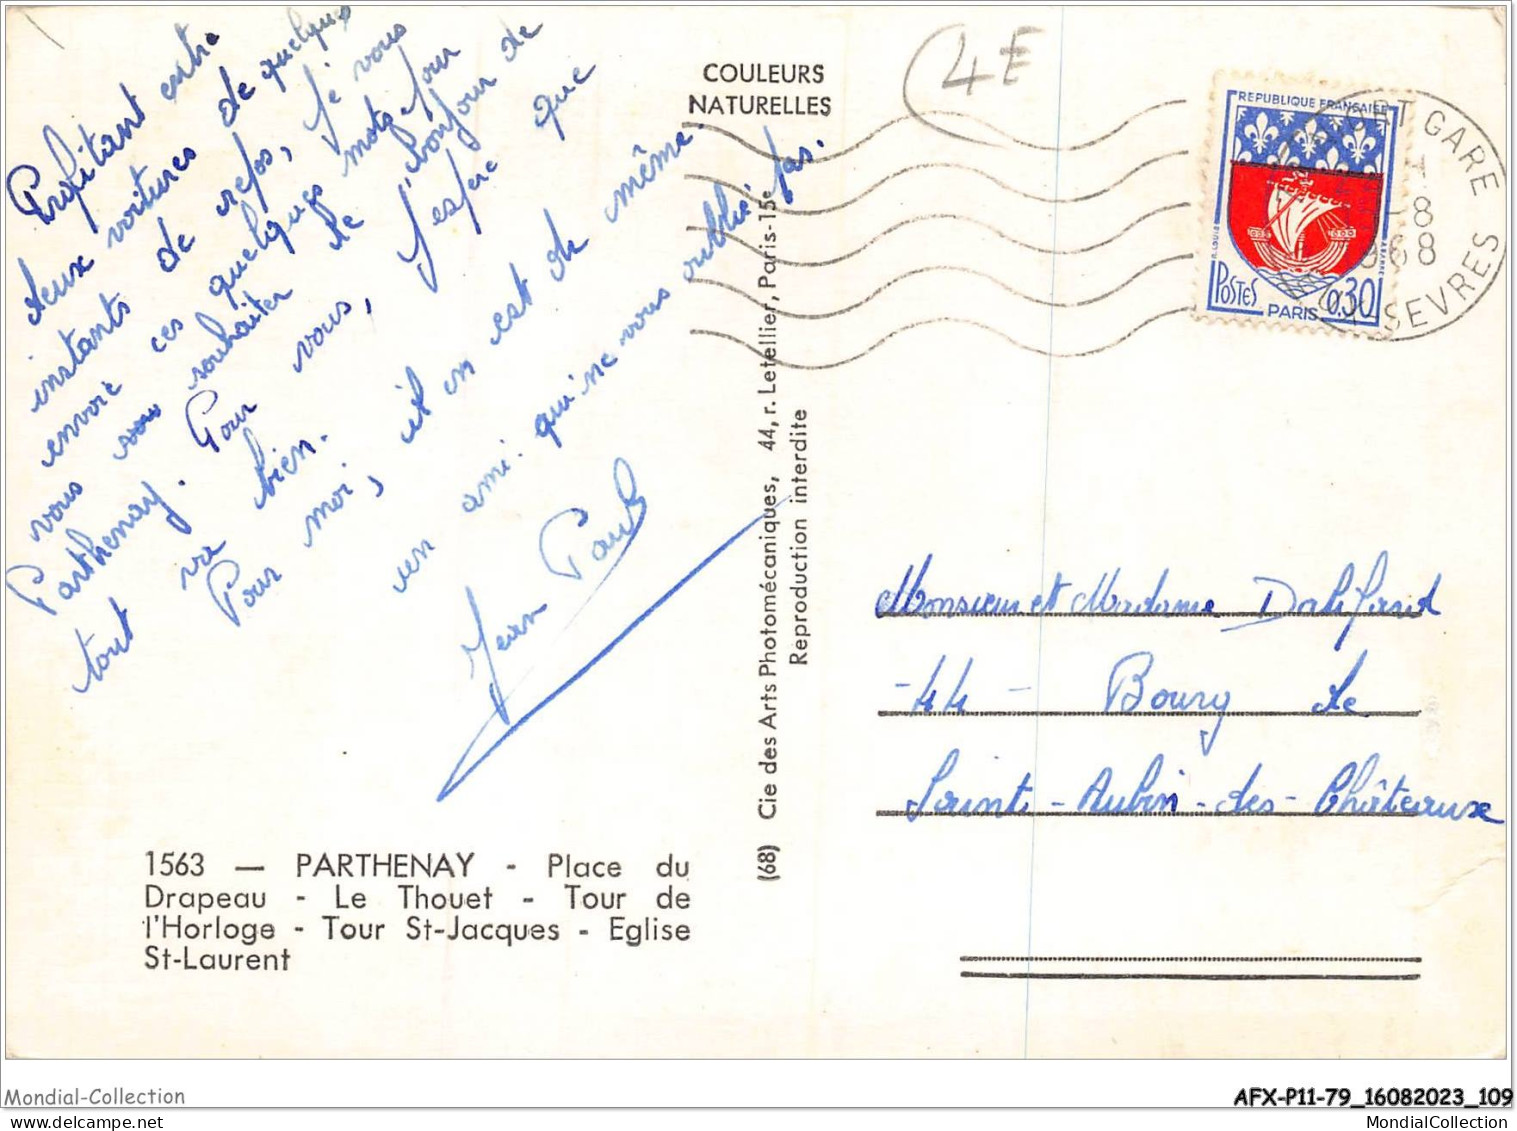 Profitant entre
deux voitures de quelques
instants de repos, je vous
envoie ces quelques mots pour
vous vous souhaiter le bonjour de
Parthenay. Pour vous, j'espère que
tout va bien.
Pour moi, il en est de même.
un ami qui ne vous oublie pas.
Jean Paul
1563 — PARTHENAY - Place du
Drapeau - Le Thouet - Tour de
l'Horloge - Tour St-Jacques - Eglise
St-Laurent
COULEURS
NATURELLES
(68) Cie des Arts Photomécaniques, 44, r. Letellier, Paris-15e
Reproduction interdite
4E
REPUBLIQUE FRANÇAISE
POSTES
PARIS
0,30
GARE
-8
68
SEVRES
Monsieur et Madame
-44- Bourg de
Sainte-Aubin-des-Châteaux
Mondial-Collection
AFX-P11-79_16082023_109
MondialCollection